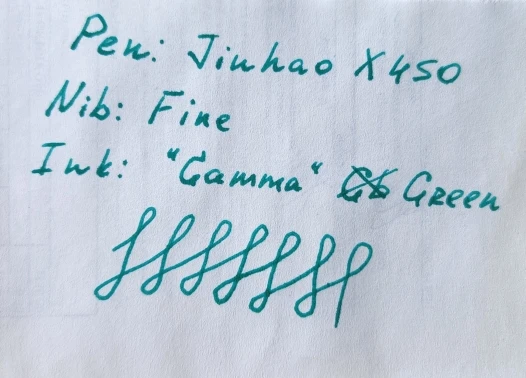 Pen: Jinhao X450
Nib: Fine
Ink: "Gamma" Green